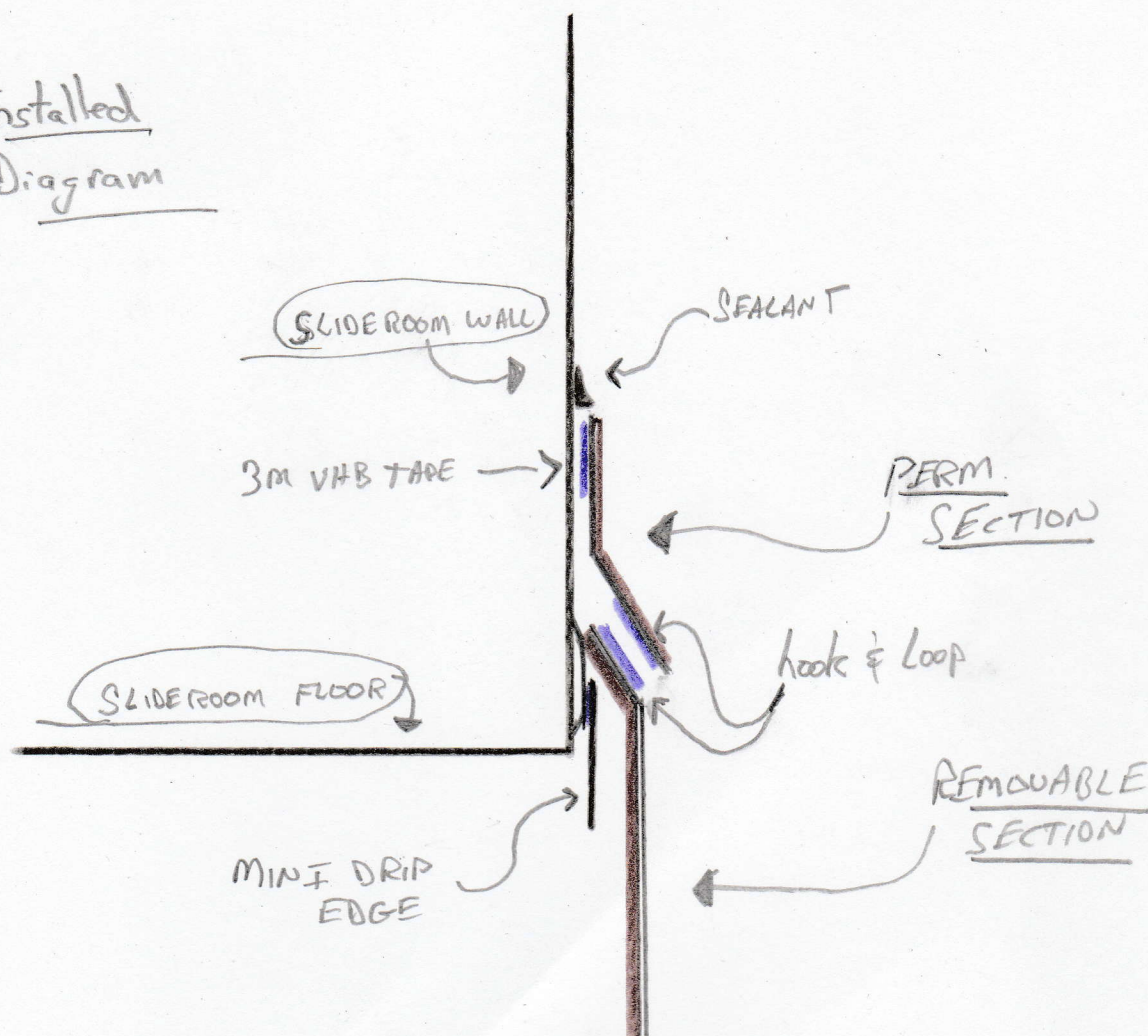 nstalled
Diagram
SLIDEROOM WALL
SEALANT
3M VHB TAPE
PERM.
SECTION
hook & Loop
SLIDEROOM FLOOR
REMOVABLE
SECTION
MINI DRIP
EDGE